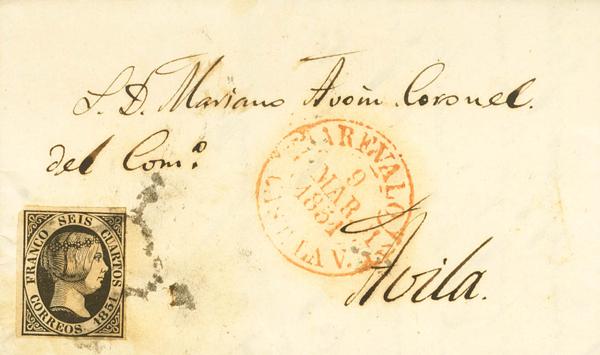 S. D. Mariano Avoin Coronel.
del Com.º
AREVALO
9
MAR
1851
CAST LA V.
Avila.
FRANCO SEIS CUARTOS
CORREOS. 1851